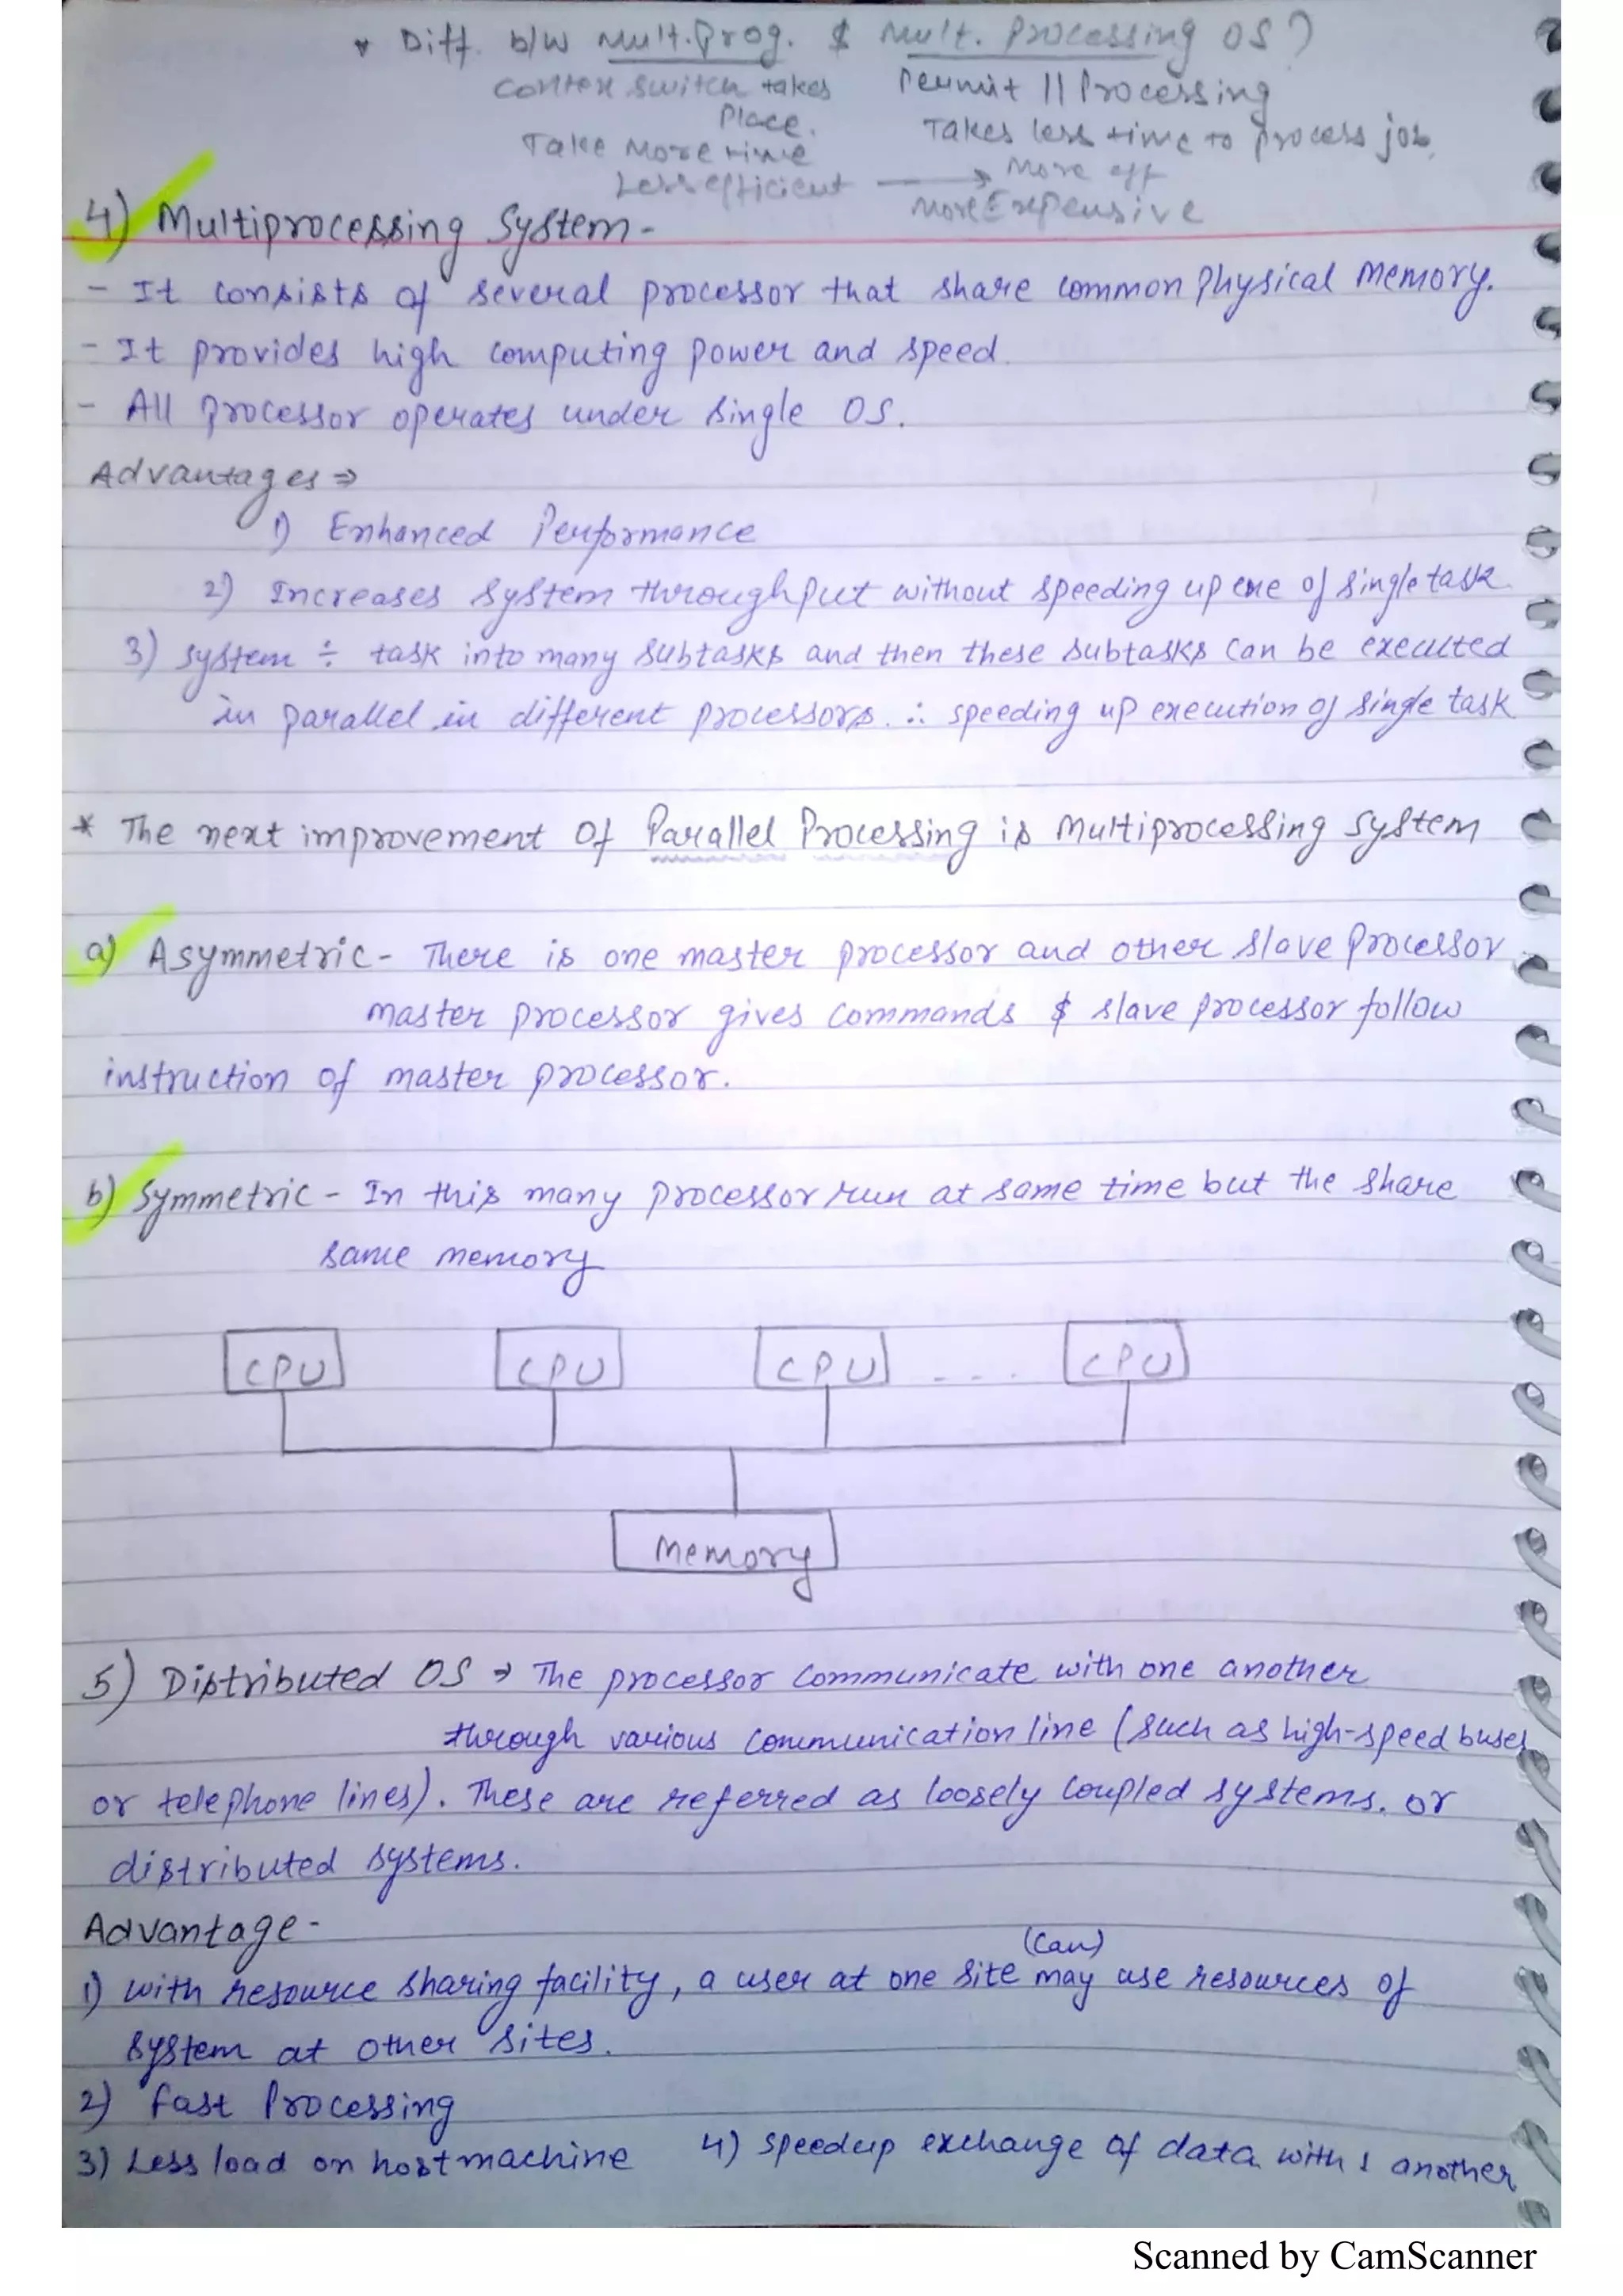 * Diff. b/w Mult.Prog. & Mult. Processing OS?
Context switch takes Place. Permit || Processing
Take More time Takes less time to process job.
Less efficient → More eff
More Expensive
4) Multiprocessing System -
- It consists of several processor that share common Physical Memory.
- It provides high computing power and speed.
- All processor operates under single OS.
Advantages ⇒
1) Enhanced Performance
2) Increases system throughput without speeding up exe of single task.
3) system ÷ task into many subtasks and then these subtasks can be executed
in parallel in different processors. ∴ speeding up execution of single task
* The next improvement of Parallel Processing is Multiprocessing System
a) Asymmetric - There is one master processor and other slave processor
master processor gives commands & slave processor follow
instruction of master processor.
b) Symmetric - In this many processor run at same time but the share
same memory
CPU CPU CPU ... CPU
Memory
5) Distributed OS → The processor communicate with one another
through various communication line (such as high-speed buses
or telephone lines). These are referred as loosely coupled systems. or
distributed systems.
Advantage -
(can)
1) with resource sharing facility, a user at one site may use resources of
system at other sites.
2) fast Processing
3) Less load on hostmachine 4) speedup exchange of data with 1 another
Scanned by CamScanner